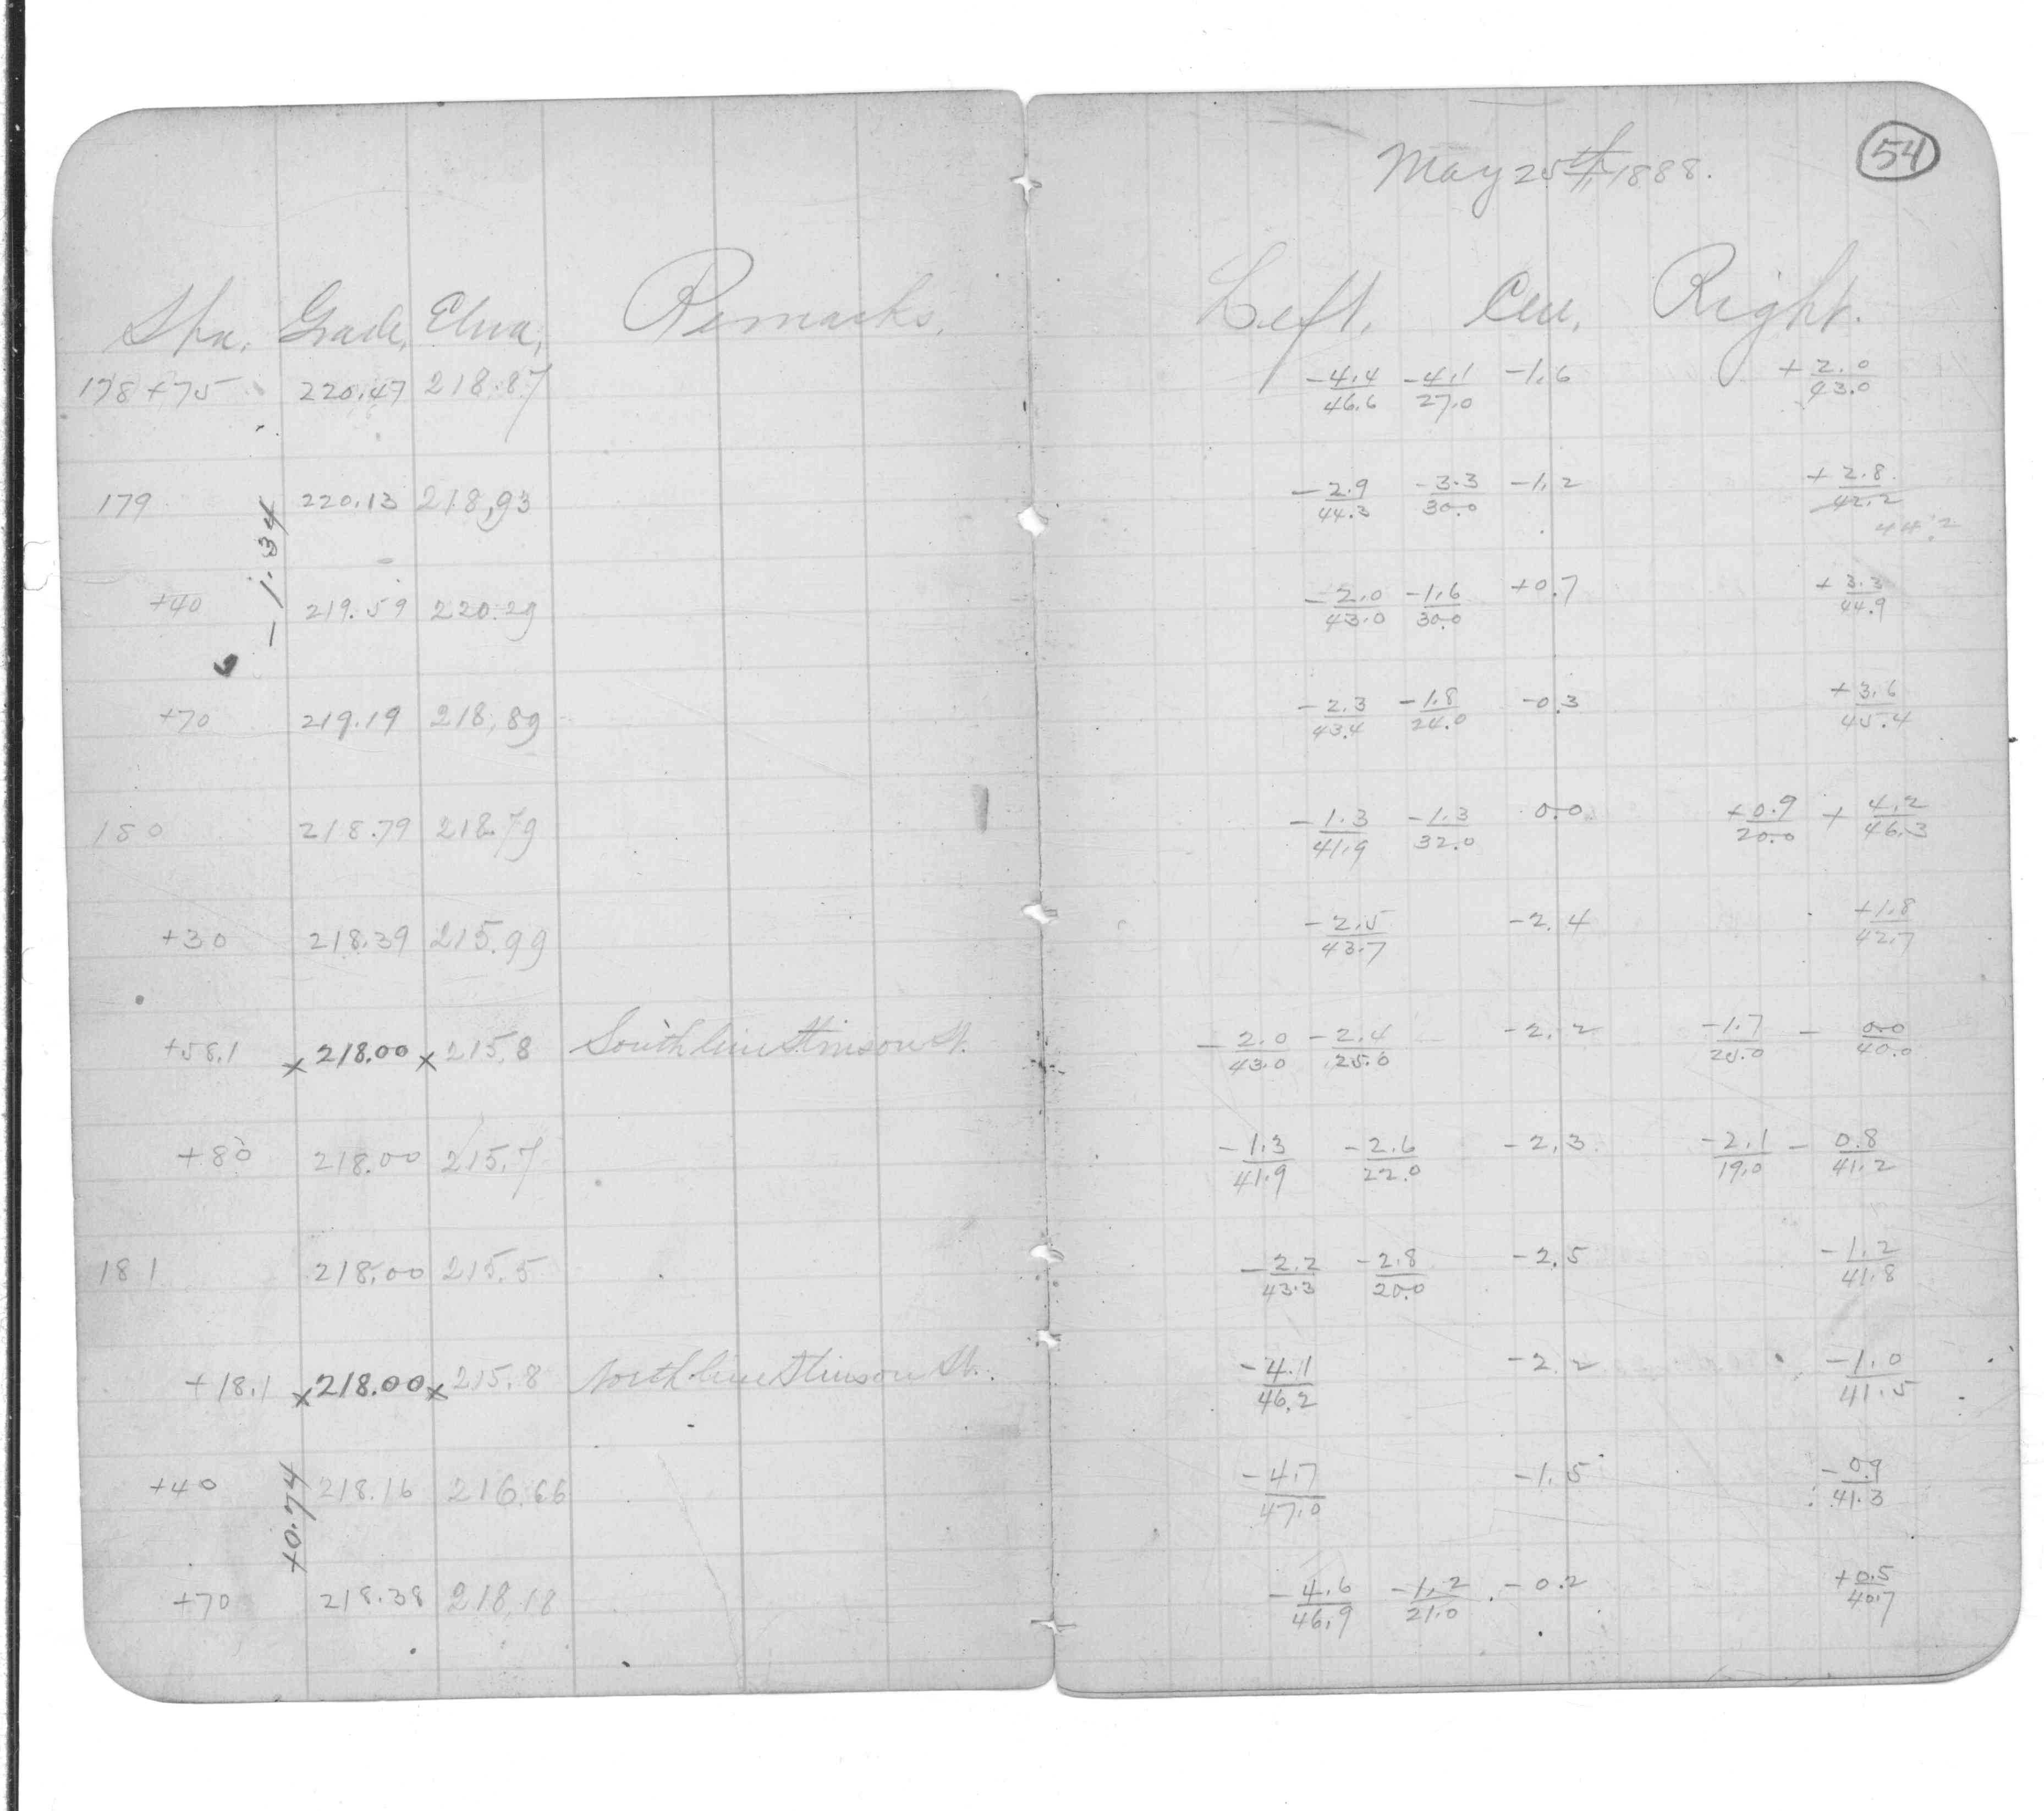 May 25th, 1888. 54
Sta. Grade, Eleva, Remarks. Left, Cen, Right.
178+75 220.47 218.87 -4.4/46.6 -4.1/27.0 -1.6 +2.0/43.0
179 220.13 218.93 -2.9/44.3 -3.3/30.0 -1.2 +2.8/42.2
44.2
-1.34
+40 219.59 220.29 -2.0/43.0 -1.6/30.0 +0.7 +3.3/44.9
+70 219.19 218.89 -2.3/43.4 -1.8/24.0 -0.3 +3.6/45.4
180 218.79 218.79 -1.3/41.9 -1.3/32.0 0.0 +0.9/20.0 +4.2/46.3
+30 218.39 215.99 -2.5/43.7 -2.4 +1.8/42.7
+58.1 x 218.00 x 215.8 South line Stinson St. -2.0/43.0 -2.4/25.0 -2.2 -1.7/25.0 - 0.0/40.0
+80 218.00 215.7 -1.3/41.9 -2.6/22.0 -2.3 -2.1/19.0 -0.8/41.2
181 218.00 215.5 -2.2/43.3 -2.8/20.0 -2.5 -1.2/41.8
+18.1 x 218.00 x 215.8 North line Stinson St. -4.1/46.2 -2.2 -1.0/41.5
+40 218.16 216.66 -4.7/47.0 -1.5 -0.9/41.3
+0.74
+70 218.38 218.18 -4.6/46.9 -1.2/21.0 -0.2 +0.5/40.7